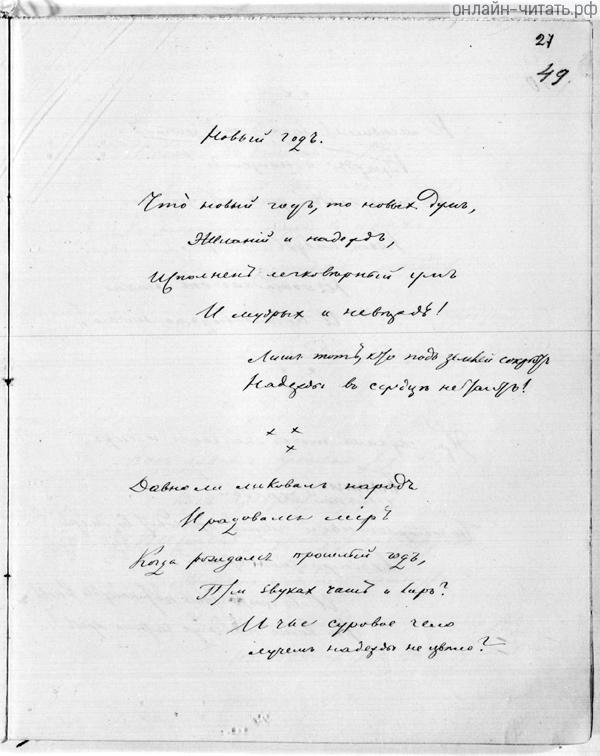 онлайн-читать.рф
27
49.
Новый годъ.
Что новый годъ, то новыхъ думъ,
Желаній и надеждъ,
Исполненъ легковѣрный умъ
И мудрыхъ и невѣждъ!
Лишь тотъ, кто подъ землей сокрытъ
Надежды въ сердцѣ не таитъ!
× ×
×
Давно ли ликовалъ народъ
И радовался міръ
Когда рождался прошлый годъ,
При звукахъ чашъ и лиръ?
И чье суровое чело
лучемъ надежды не цвѣло?